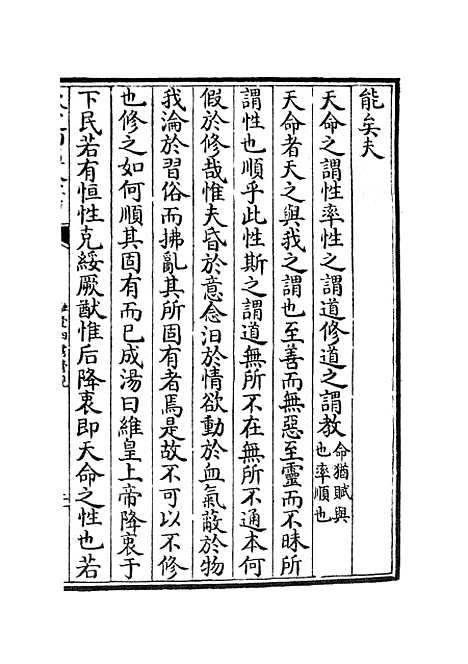 能矣夫
天命之謂性率性之謂道修道之謂教命猶賦與也率順也
天命者天之與我之謂也至善而無惡至靈而不昧所
謂性也順乎此性斯之謂道無所不在無所不通本何
假於修哉惟夫昏於意念汩於情欲動於血氣蔽於物
我淪於習俗而拂亂其所固有者焉是故不可以不修
也修之如何順其固有而已成湯曰維皇上帝降衷于
下民若有恒性克綏厥猷惟后降衷即天命之性也若